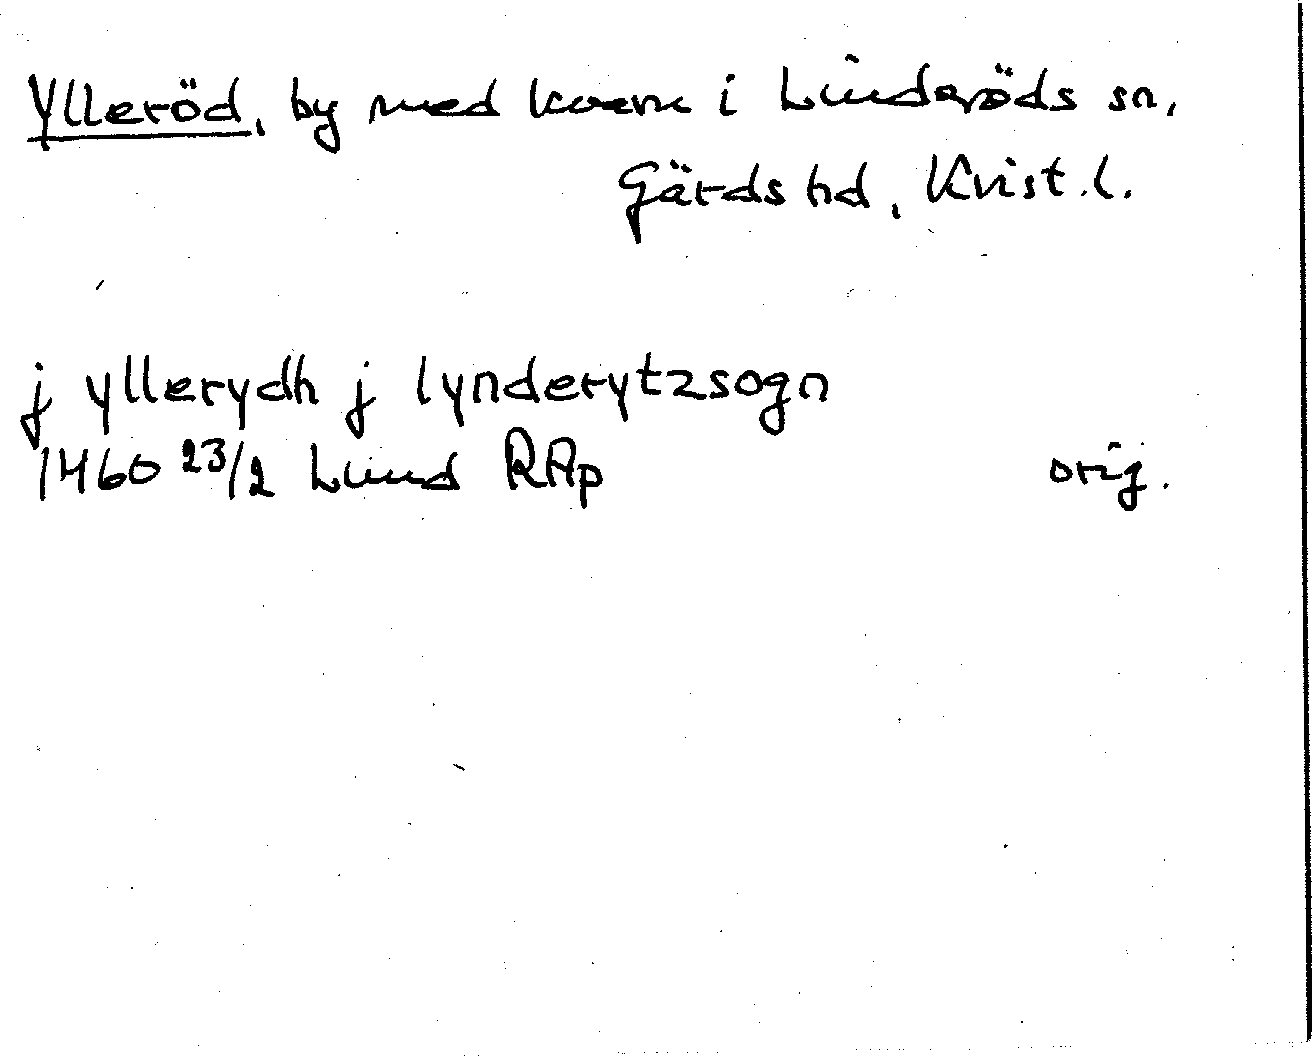 Ylleröd, by med kvarn i Linderöds sn,
Gärds hd, Krist.l.
j yllerydh j lynderytzsogn
1460 23/2 Lund RAp orig.